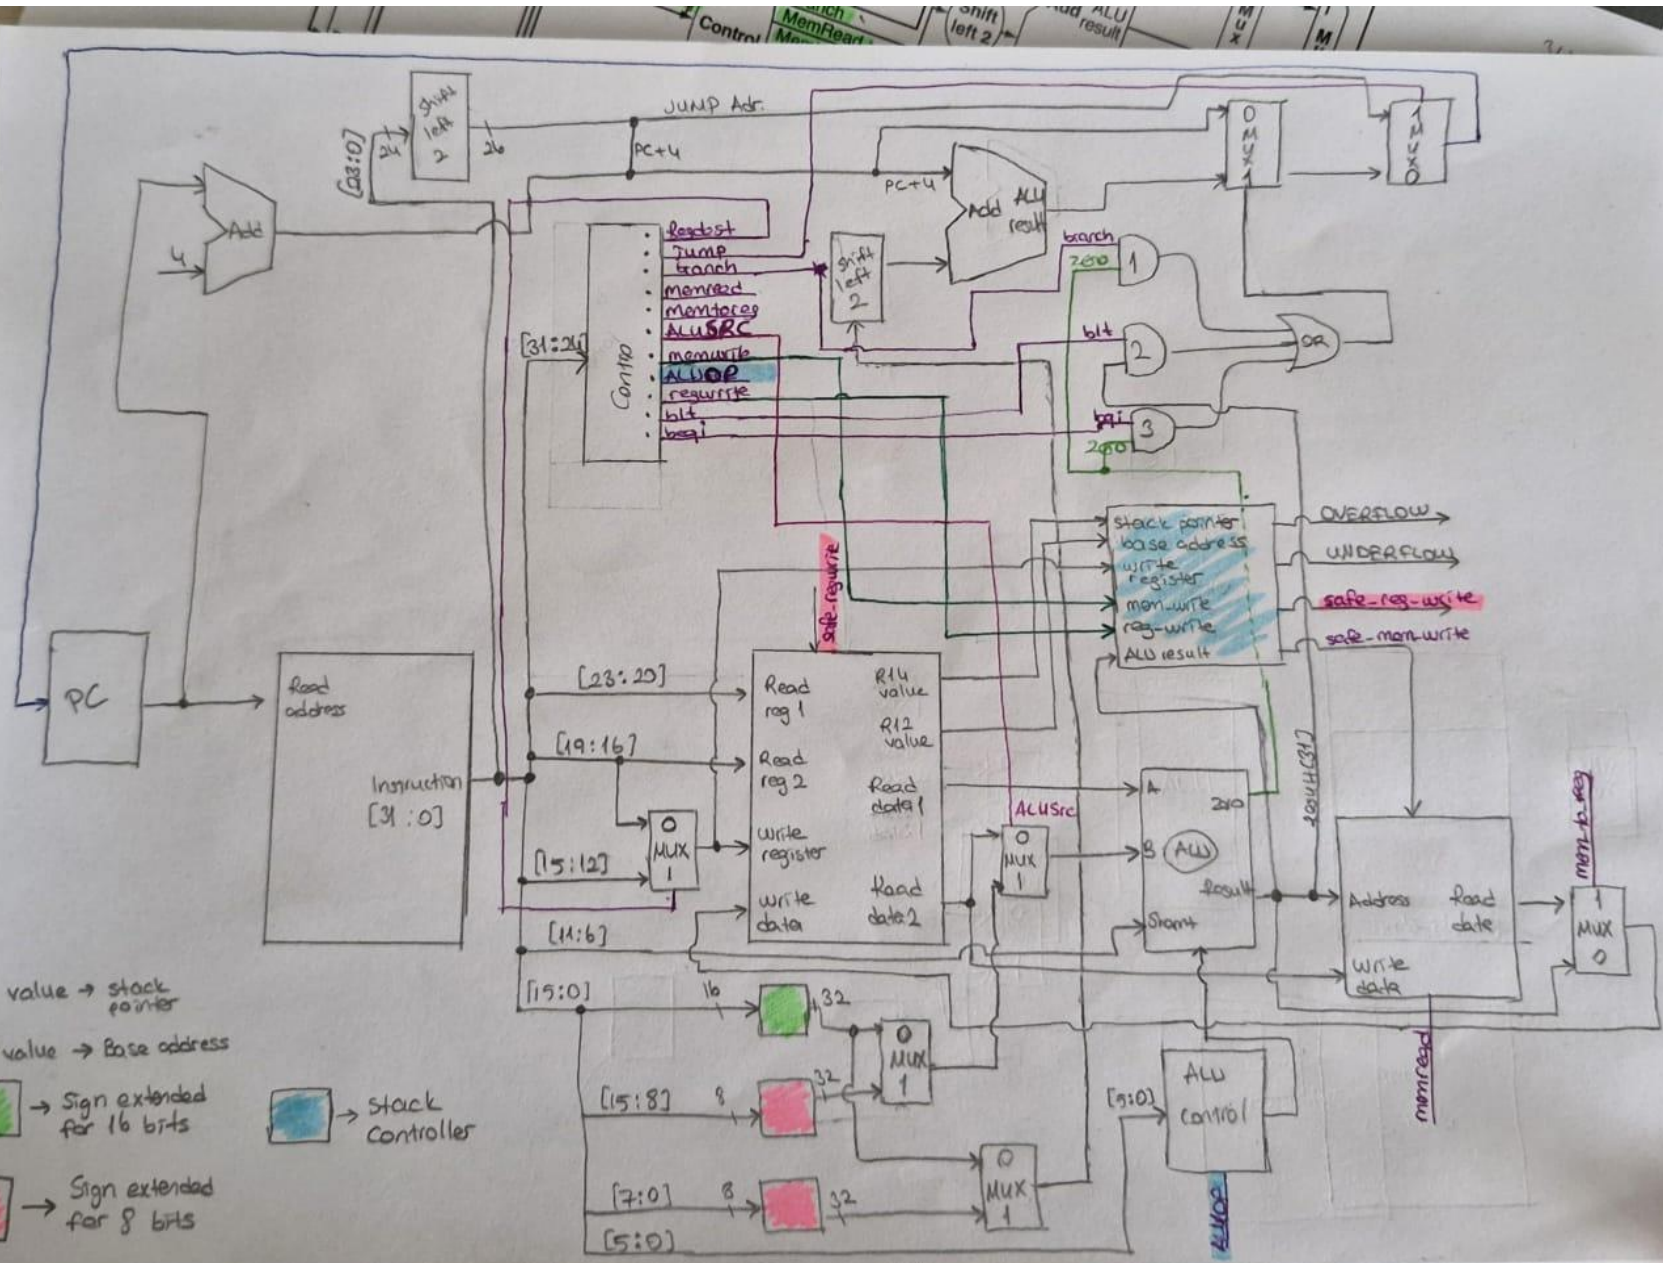 Control
MemRead
Shift
left 2
ALU
result
M
u
x
M
shift
left
2
[23:0]
24
26
JUMP Adr.
PC+4
PC+4
Add
4
Add ALU
result
0
MUX
1
1
MUX
0
[31:24]
Control
Regdst
Jump
branch
memread
memtoreg
ALUSRC
memwrite
ALUOP
regwrite
blt
beqi
shift
left
2
branch
zero
1
blt
2
3
OR
stack pointer
base address
write
register
mem-write
reg-write
ALU result
OVERFLOW
UNDERFLOW
safe-reg-write
safe-mem-write
safe-regwrite
PC
Read
address
Instruction
[31:0]
[23:20]
[19:16]
[15:12]
[11:6]
[15:0]
0
MUX
1
Read
reg 1
Read
reg 2
write
register
write
data
R14
value
R12
value
Read
data1
Read
data2
ALUSrc
0
MUX
1
A
B
ALU
Result
Shamt
Address
Read
data
Write
data
mem-to-reg
1
MUX
0
memread
16
32
0
MUX
1
[15:8]
8
32
[7:0]
8
32
0
MUX
1
[5:0]
[5:0]
ALU
control
ALUOP
value → stack
pointer
value → Base address
→ Sign extended
for 16 bits
→ stack
controller
→ Sign extended
for 8 bits